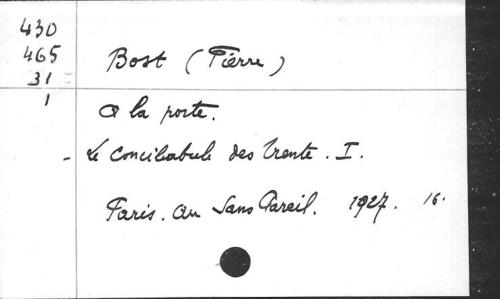 430
465
31
1
Bost (Pierre)
A la porte.
- Le Conciliabule des Trente. I.
Paris. Au Sans Pareil. 1927. 16.